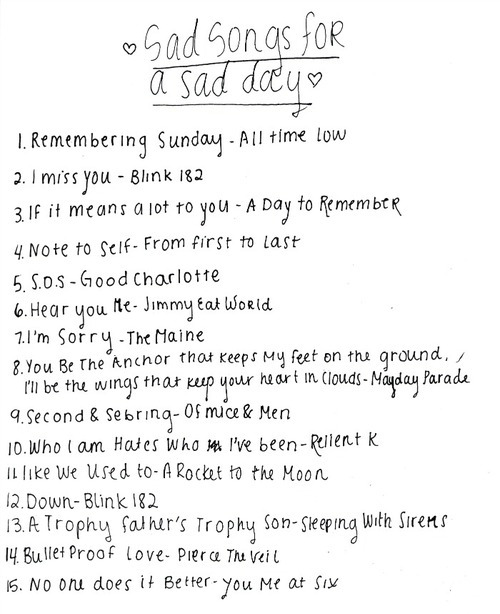 ♡ Sad Songs for
a sad day ♡
1. Remembering Sunday - All time low
2. I miss you - Blink 182
3. If it means a lot to you - A Day to Remember
4. Note to self - From first to Last
5. S.O.S - Good Charlotte
6. Hear you Me - Jimmy Eat World
7. I'm Sorry - The Maine
8. You Be The Anchor that keeps My feet on the ground,
I'll be the wings that keep your heart in Clouds - Mayday Parade
9. Second & Sebring - Of mice & Men
10. Who I am Hates Who I've been - Relient K
11. like We Used to - A Rocket to the Moon
12. Down - Blink 182
13. A Trophy father's Trophy Son - Sleeping With Sirens
14. Bullet Proof Love - Pierce The Veil
15. No one does it Better - You Me at Six